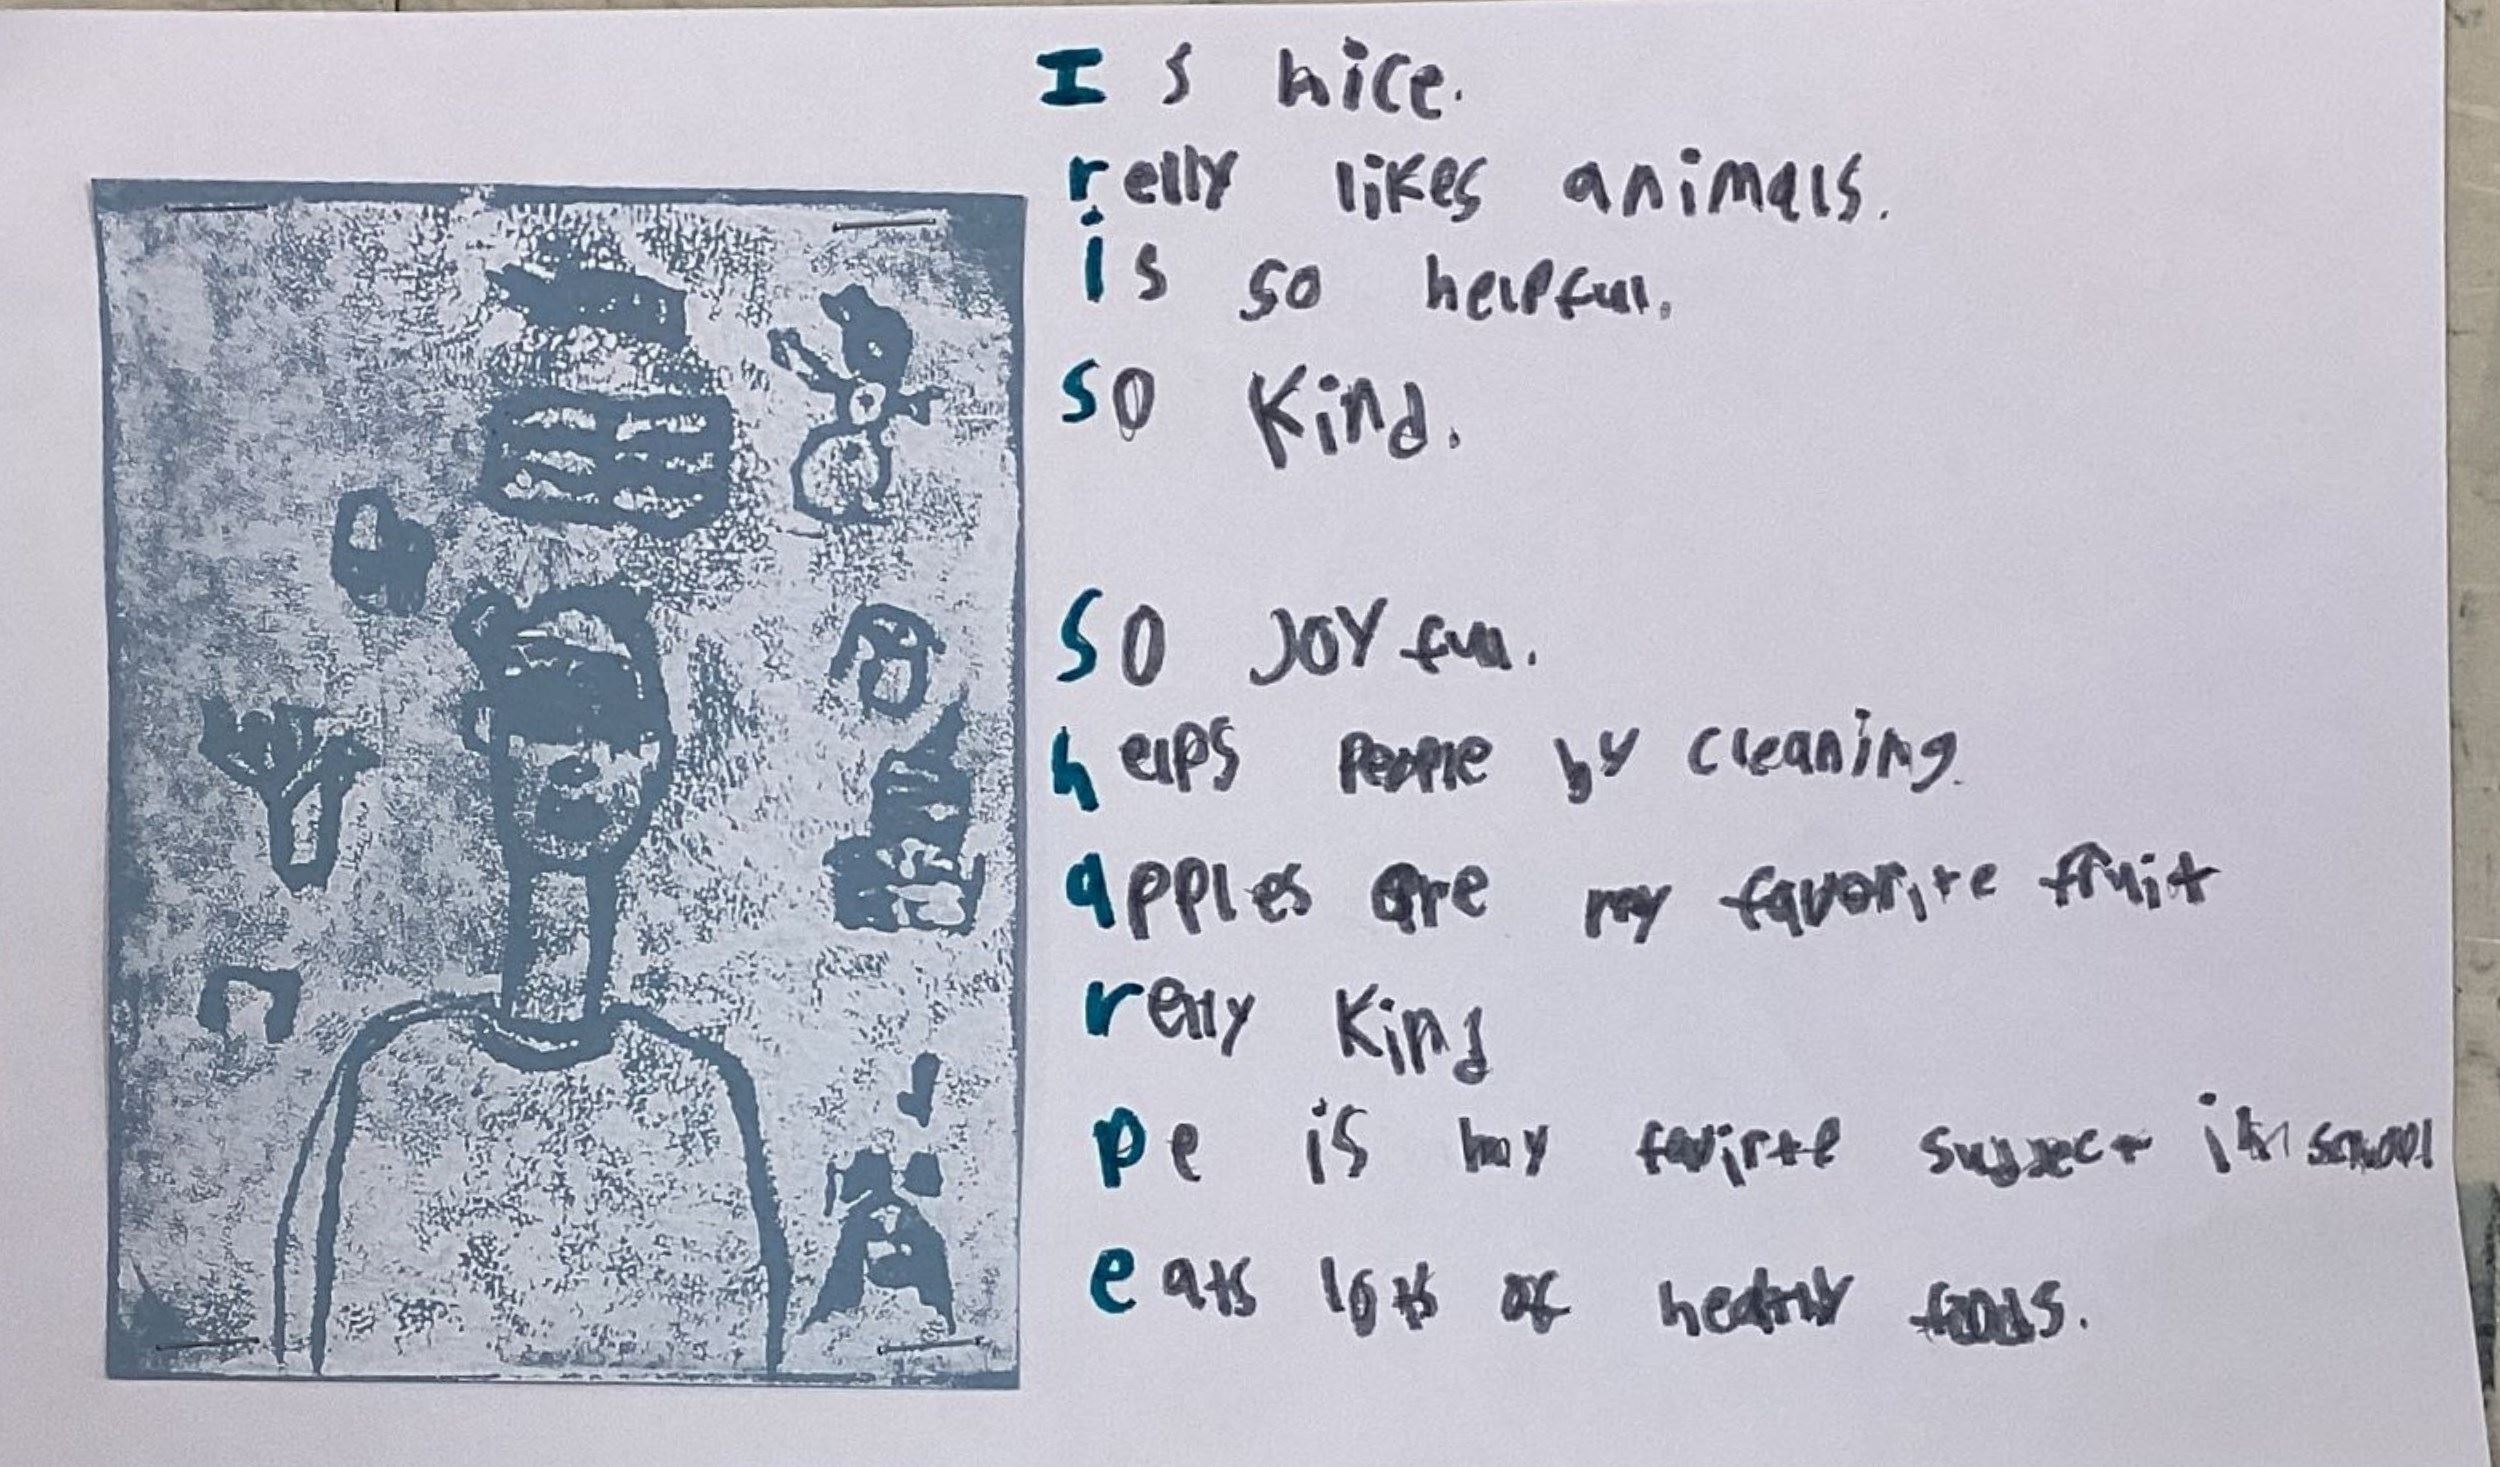 Is nice.
relly likes animals.
is so helpful.
so Kind.
So JOY ful.
helps people by cleaning.
apples are my favorite fruit
relly Kind
Pe is my favirte subject in school
eats lots of healthy foods.